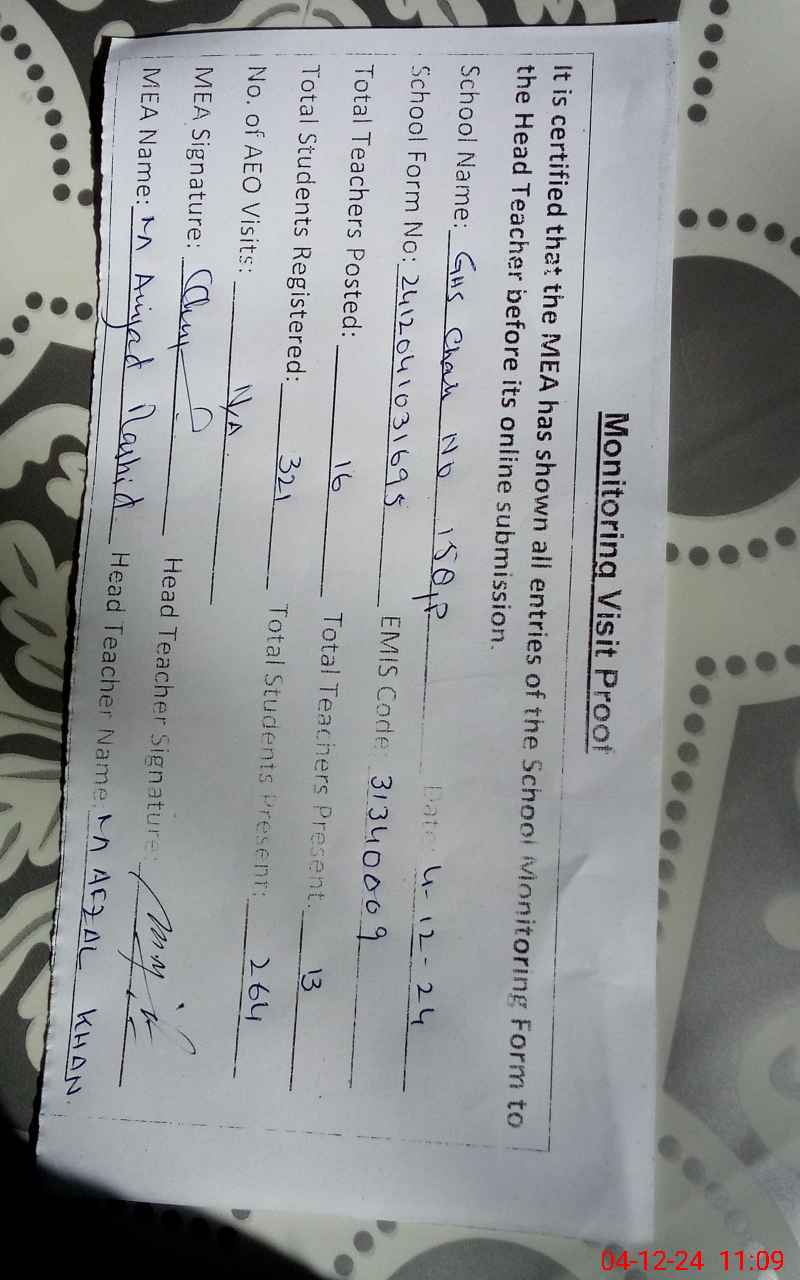 Monitoring Visit Proof
It is certified that the MEA has shown all entries of the School Monitoring Form to
the Head Teacher before its online submission.
School Name: GHS Chak No 150/P Date: 4-12-24
School Form No: 2412041031695 EMIS Code: 31340009
Total Teachers Posted: 16 Total Teachers Present: 13
Total Students Registered: 321 Total Students Present: 264
No. of AEO Visits: N/A
MEA Signature: Head Teacher Signature:
MEA Name: M Amjad Rashid Head Teacher Name: M AFZAL KHAN
04-12-24 11:09